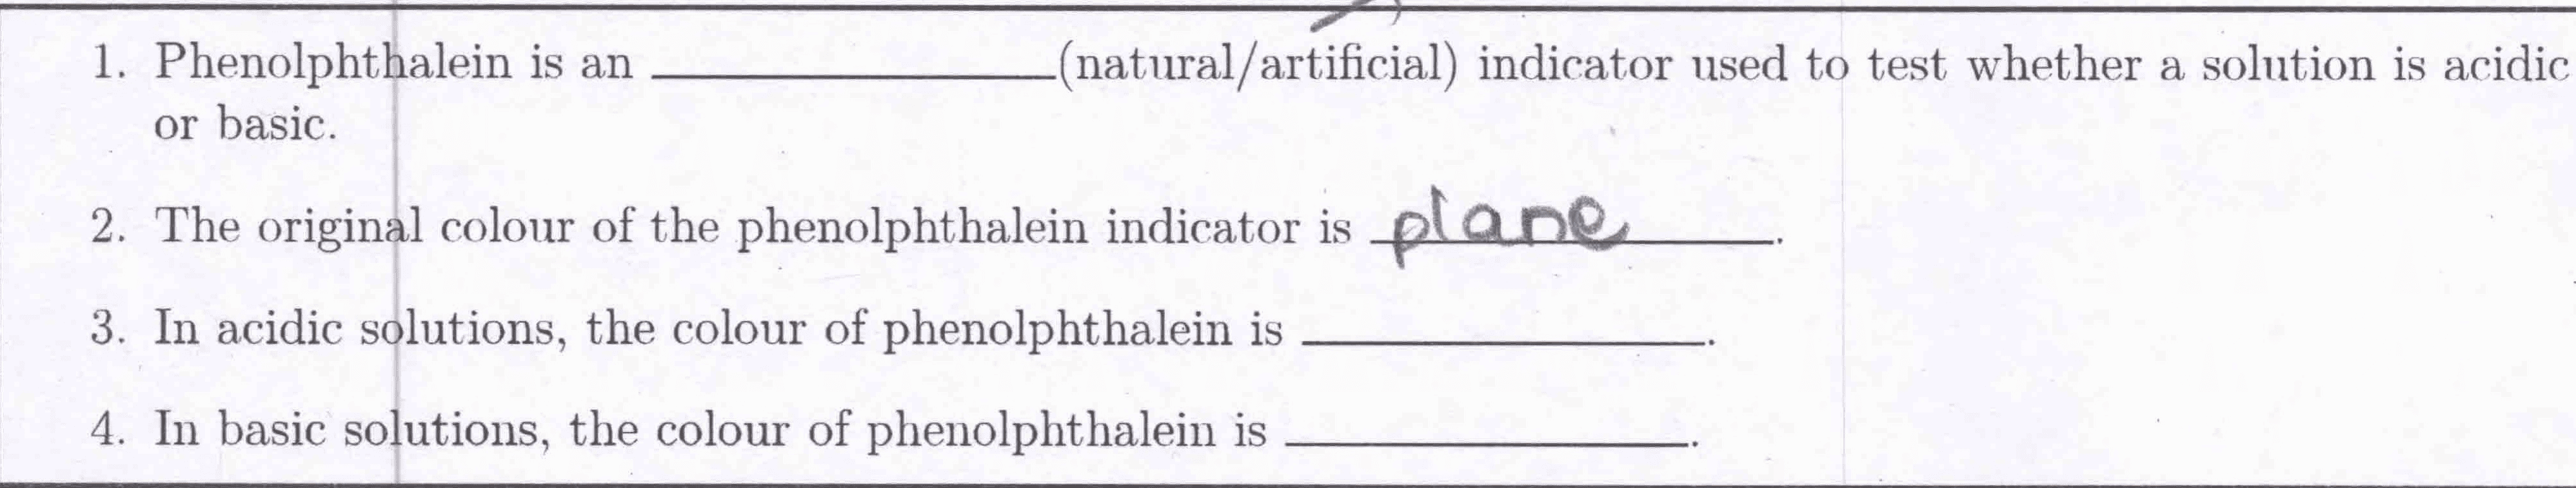 1. Phenolphthalein is an ____________(natural/artificial) indicator used to test whether a solution is acidic
or basic.
2. The original colour of the phenolphthalein indicator is plane.
3. In acidic solutions, the colour of phenolphthalein is ____________.
4. In basic solutions, the colour of phenolphthalein is ____________.